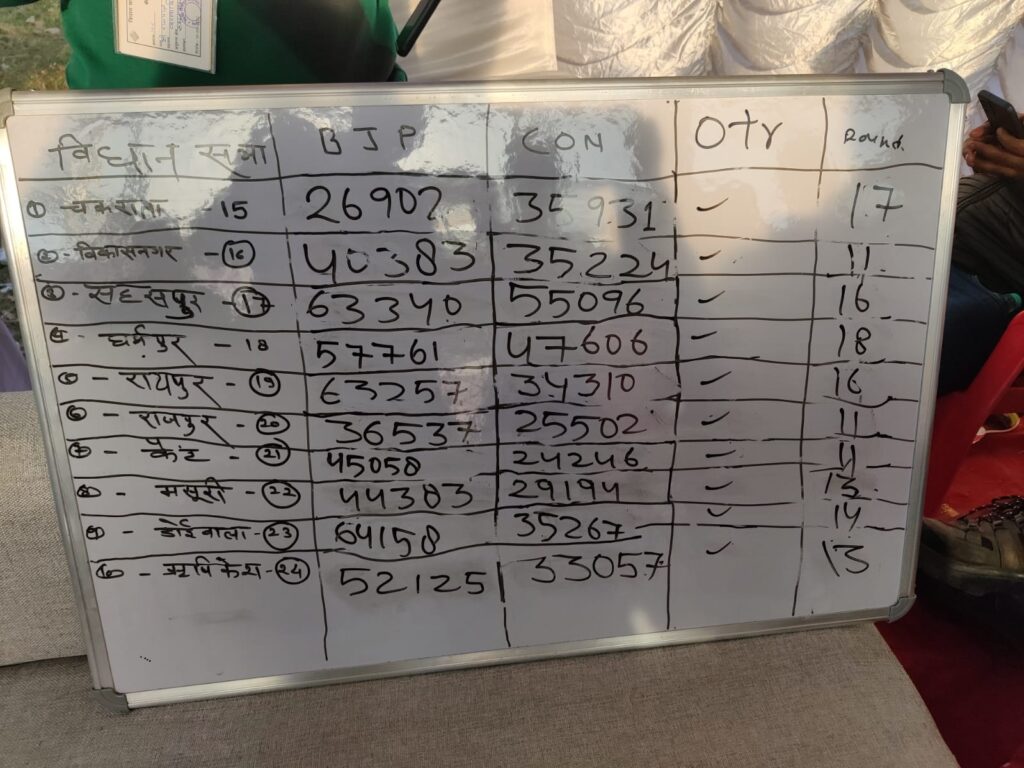 विधान सभा BJP CON Otr Round.
① चकराता - 15 26902 35931 ✓ 17
② - विकासनगर - ⑯ 40383 35224 ✓ 11
③ - सहसपुर - ⑰ 63340 55096 ✓ 16
④ - धर्मपुर - 18 57761 47606 ✓ 18
⑤ - रायपुर - ⑲ 63257 34310 ✓ 16
⑥ - राजपुर - ⑳ 36537 25502 ✓ 11
⑦ - कैंट - ㉑ 45058 24246 ✓ 11
⑧ - मसूरी - ㉒ 44383 29194 ✓ 13
⑨ - डोईवाला - ㉓ 64158 35267 ✓ 14
⑩ - ऋषिकेश - ㉔ 52125 33057 ✓ 13